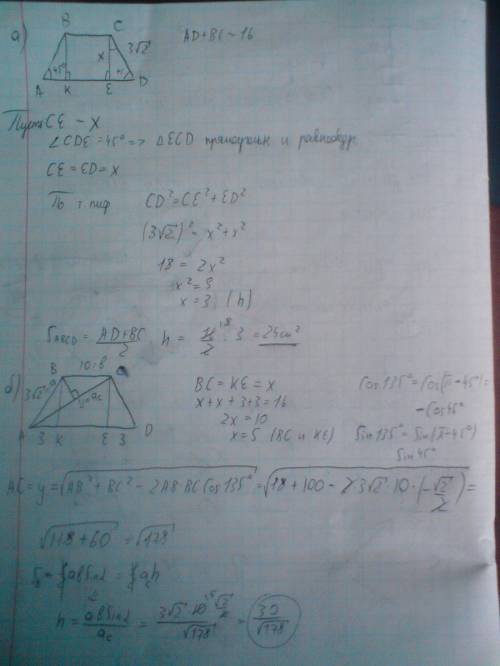 а)
B C
AD+BC = 16
x 3√2
45°
A K E D
Пусть CE - x
∠CDE = 45° => △ECD прямоугольн и равнобедр
CE = ED = x
По т. пиф CD² = CE² + ED²
(3√2)² = x² + x²
18 = 2x²
x² = 9
x = 3 (h)
S ABCD = (AD+BC)/2 · h = 16/2 · 3 = 24 см²
б)
B
3√2
A 3 K E 3 D
BC = KE = x
x + x + 3 + 3 = 16
2x = 10
x = 5 (BC и KE)
Cos 135° = Cos(π - 45°) =
- Cos 45°
Sin 135° = Sin(π - 45°)
Sin 45°
AC = y = √(AB² + BC² - 2AB·BC Cos 135°) = √(18 + 100 - 2·3√2·10·(-√2/2)) =
√(118 + 60) = √178
h = abSinα/ac = (3√2·10·√2/2)/√178 = 30/√178